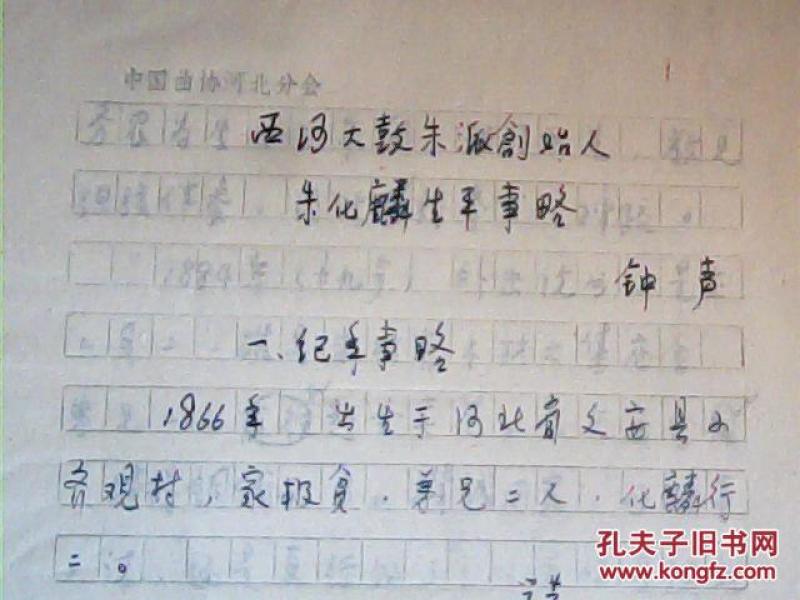 中国曲协河北分会
西河大鼓朱派創始人
朱化麟生平事略
钟声
一、纪年事略
1866年 出生于河北省文安县小
齐观村，家极贫．弟兄二人．化麟行
二。
孔夫子旧书网
www.kongfz.com